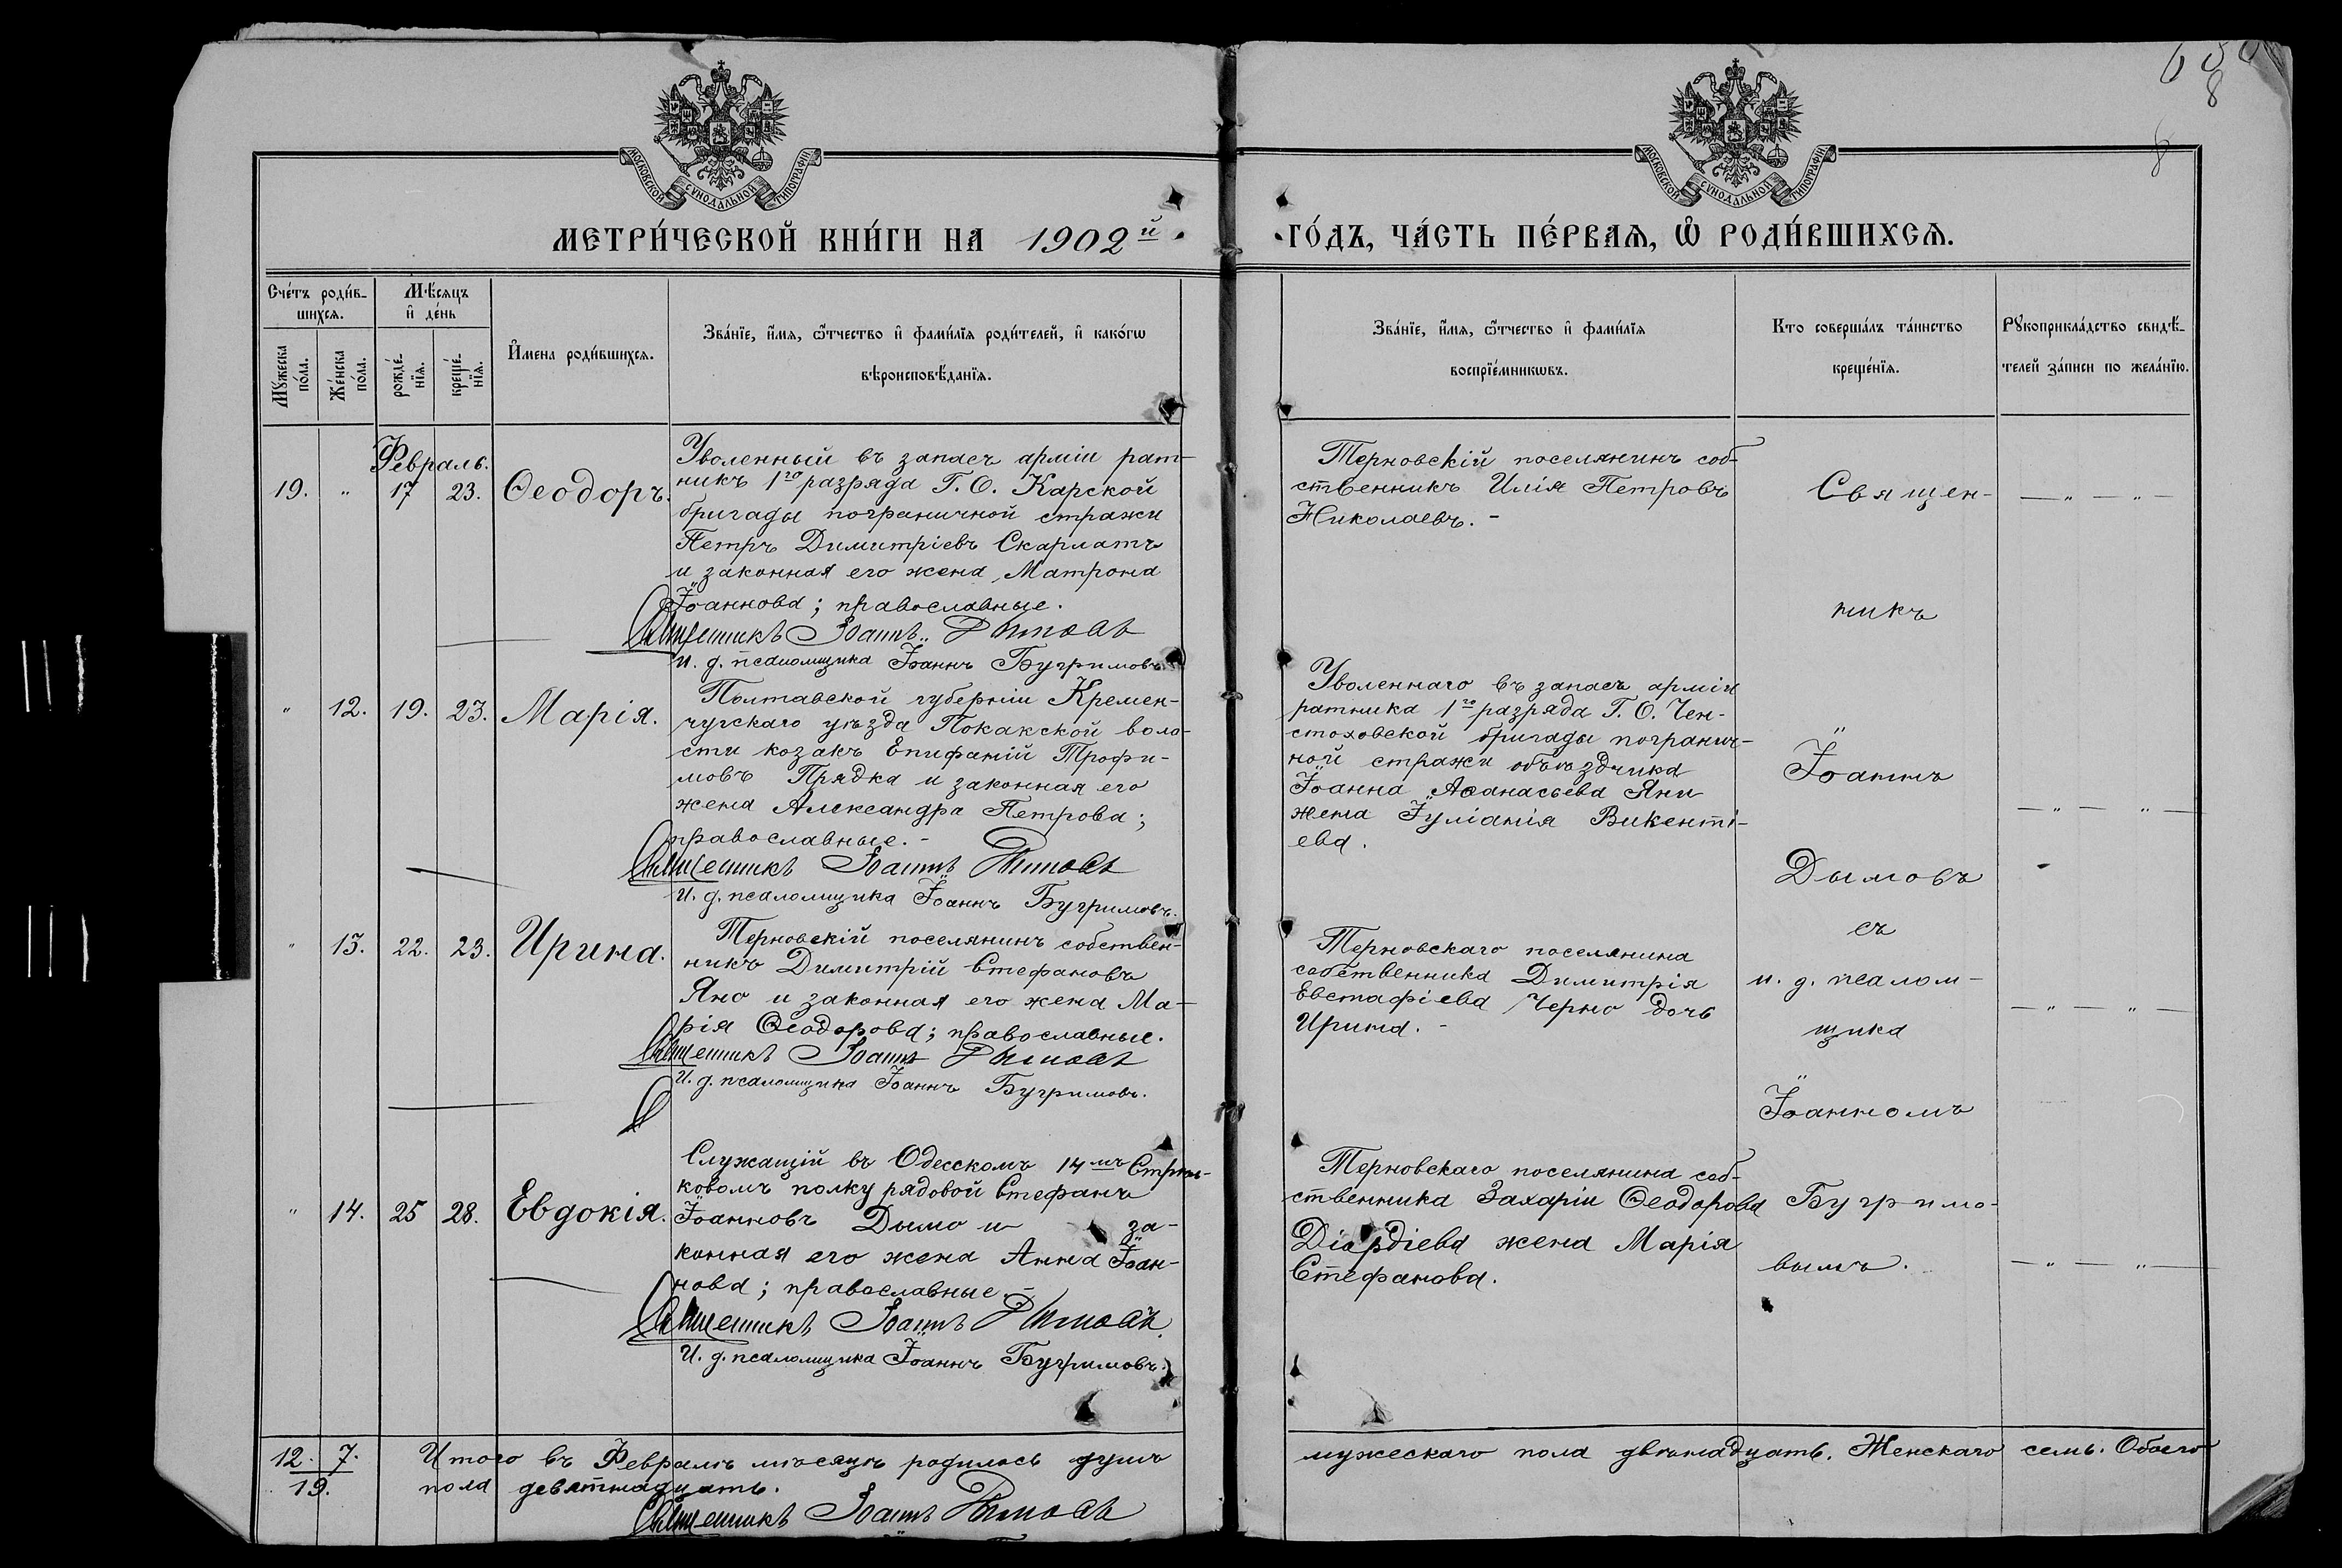 638
8
8
МОСКОВСКОЙ СѴНОДАЛЬНОЙ ТИПОГРАФІИ
МОСКОВСКОЙ СѴНОДАЛЬНОЙ ТИПОГРАФІИ
МЕТРИ́ЧЕСКОЙ КНИ́ГИ НА 1902й
ГО́ДЪ, ЧА́СТЬ ПЕ́РВАѦ, Ѽ РОДИ́ВШИХСѦ.
Сче́тъ роди́в-
шихсѧ.
Мѣ́сѧцъ
и҆ де́нь
Мꙋ́жеска
по́ла.
Же́нска
по́ла.
рожде́-
нїѧ.
креще́-
нїѧ.
И҆мена роди́вшихсѧ.
Зва́нїе, и҆́мѧ, ѻ҆́тчество и҆ фами́лїѧ роди́телей, и҆ како́гѡ
вѣроисповѣ́данїѧ.
Зва́нїе, и҆́мѧ, ѻ҆́тчество и҆ фами́лїѧ
воспрїе́мникѡвъ.
Кто соверша́лъ та́инство
креще́нїѧ.
Рꙋкоприкла́дство свидѣ́-
телей за́писи по жела́нїю.
Февраль.
19. „ 17 23. Ѳеодоръ.
Уволенный въ запасъ арміи рат-
никъ 1го разряда Г. О. Карской
бригады пограничной стражи
Петръ Димитріевъ Скарлатъ
и законная его жена Матрона
Іоаннова; православные.
Священникъ Іоаннъ Дымовъ
И. д. псаломщика Іоаннъ Бугримовъ
Терновскій поселянинъ соб-
ственникъ Илія Петровъ
Николаевъ. -
Священ-
никъ
— „ — „ —
„ 12. 19. 23. Марія.
Полтавской губерніи Кремен-
чугскаго уѣзда Покакской воло-
сти козакъ Епифаній Трофи-
мовъ Прядка и законная его
жена Александра Петрова;
православные. -
Священникъ Іоаннъ Дымовъ
И. д. псаломщика Іоаннъ Бугримовъ.
Уволеннаго въ запасъ арміи
ратника 1го разряда Г. О. Чен-
стоховской бригады погранич-
ной стражи объѣздчика
Іоанна Аѳанасьева Яни
жена Іуліанія Викенті-
ева.
Іоаннъ
Дымовъ
— „ — „ —
„ 13. 22. 23. Ирина.
Терновскій поселянинъ собствен-
никъ Димитрій Стефановъ
Яно и законная его жена Ма-
рія Ѳеодорова; православные.
Священникъ Іоаннъ Дымовъ
И. д. псаломщика Іоаннъ Бугримовъ.
Терновскаго поселянина
собственника Димитрія
Евстафіева Черно дочь
Ирина. -
съ
и. д. псалом-
щика
Іоанномъ
— „ — „ —
„ 14. 25 28. Евдокія.
Служащій въ Одесскомъ 14мъ Стрѣл-
ковомъ полку рядовой Стефанъ
Іоанновъ Дымо и за-
конная его жена Анна Іоан-
нова; православные. -
Священникъ Іоаннъ Дымовъ.
И. д. псаломщика Іоаннъ Бугримовъ.
Терновскаго поселянина соб-
ственника Захаріи Ѳеодорова
Діордіева жена Марія
Стефанова.
Бугримо-
вымъ.
— „ — „ —
12. 7. Итого въ Февралѣ мѣсяцѣ родилось душъ мужескаго пола двѣнадцать. Женскаго семь. Обоего
19. пола девятнадцать.
Священникъ Іоаннъ Дымовъ